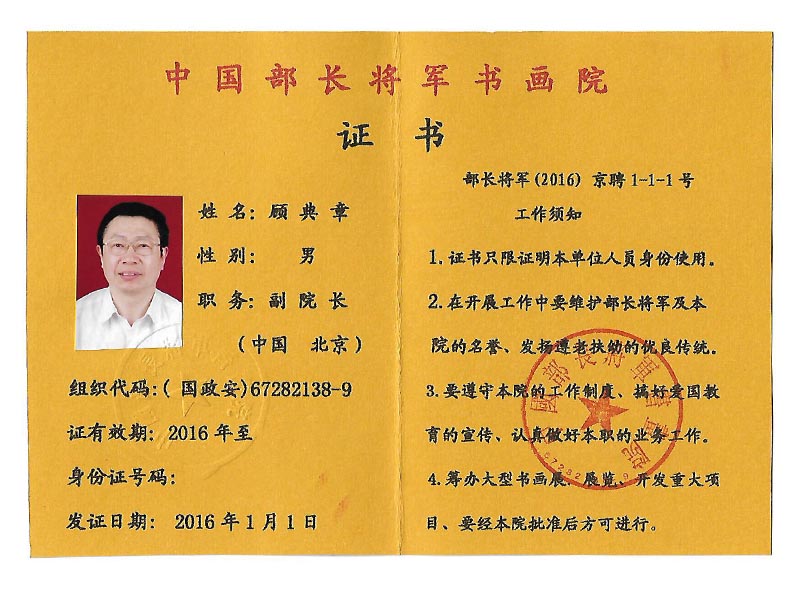 中国部长将军书画院
证书
姓名：顾典章
性别：男
职务：副院长
（中国 北京）
组织代码:（国政安）67282138-9
证有效期：2016年至
身份证号码：
发证日期：2016年1月1日
部长将军(2016) 京聘1-1-1号
工作须知
1.证书只限证明本单位人员身份使用。
2.在开展工作中要维护部长将军及本
院的名誉、发扬遵老扶幼的优良传统。
3.要遵守本院的工作制度、搞好爱国教
育的宣传、认真做好本职的业务工作。
4.筹办大型书画展、展览、开发重大项
目、要经本院批准后方可进行。